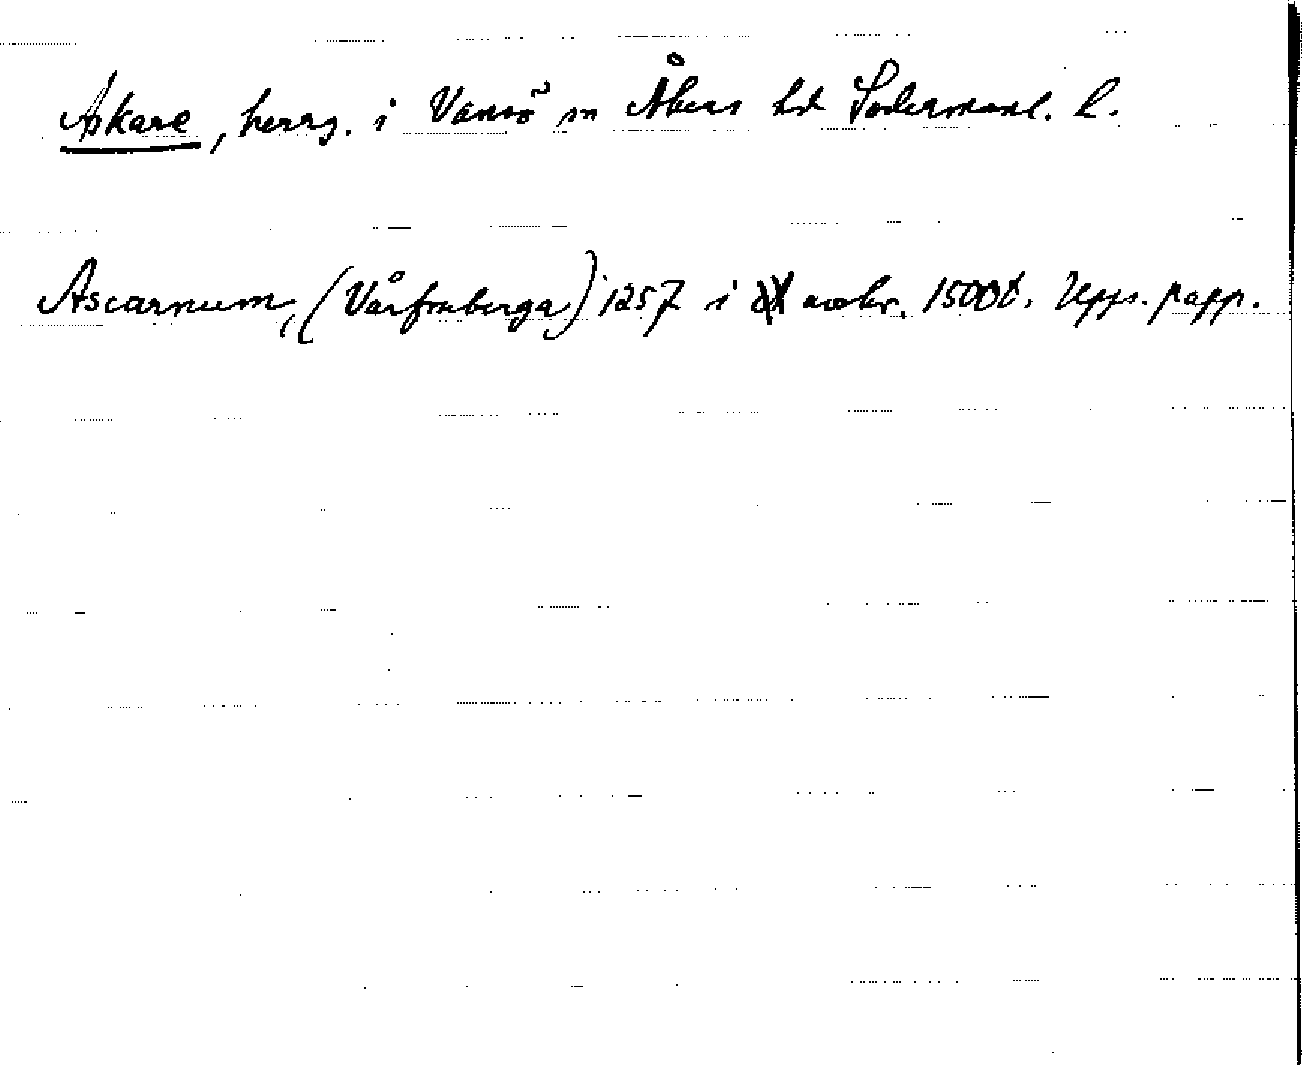 Askare, herrg. i Vansö sn Åkers hd Södermanl. l.
Ascarnum, (Vårfruberga) 1257 i avskr. 1500t. Upps. papp.